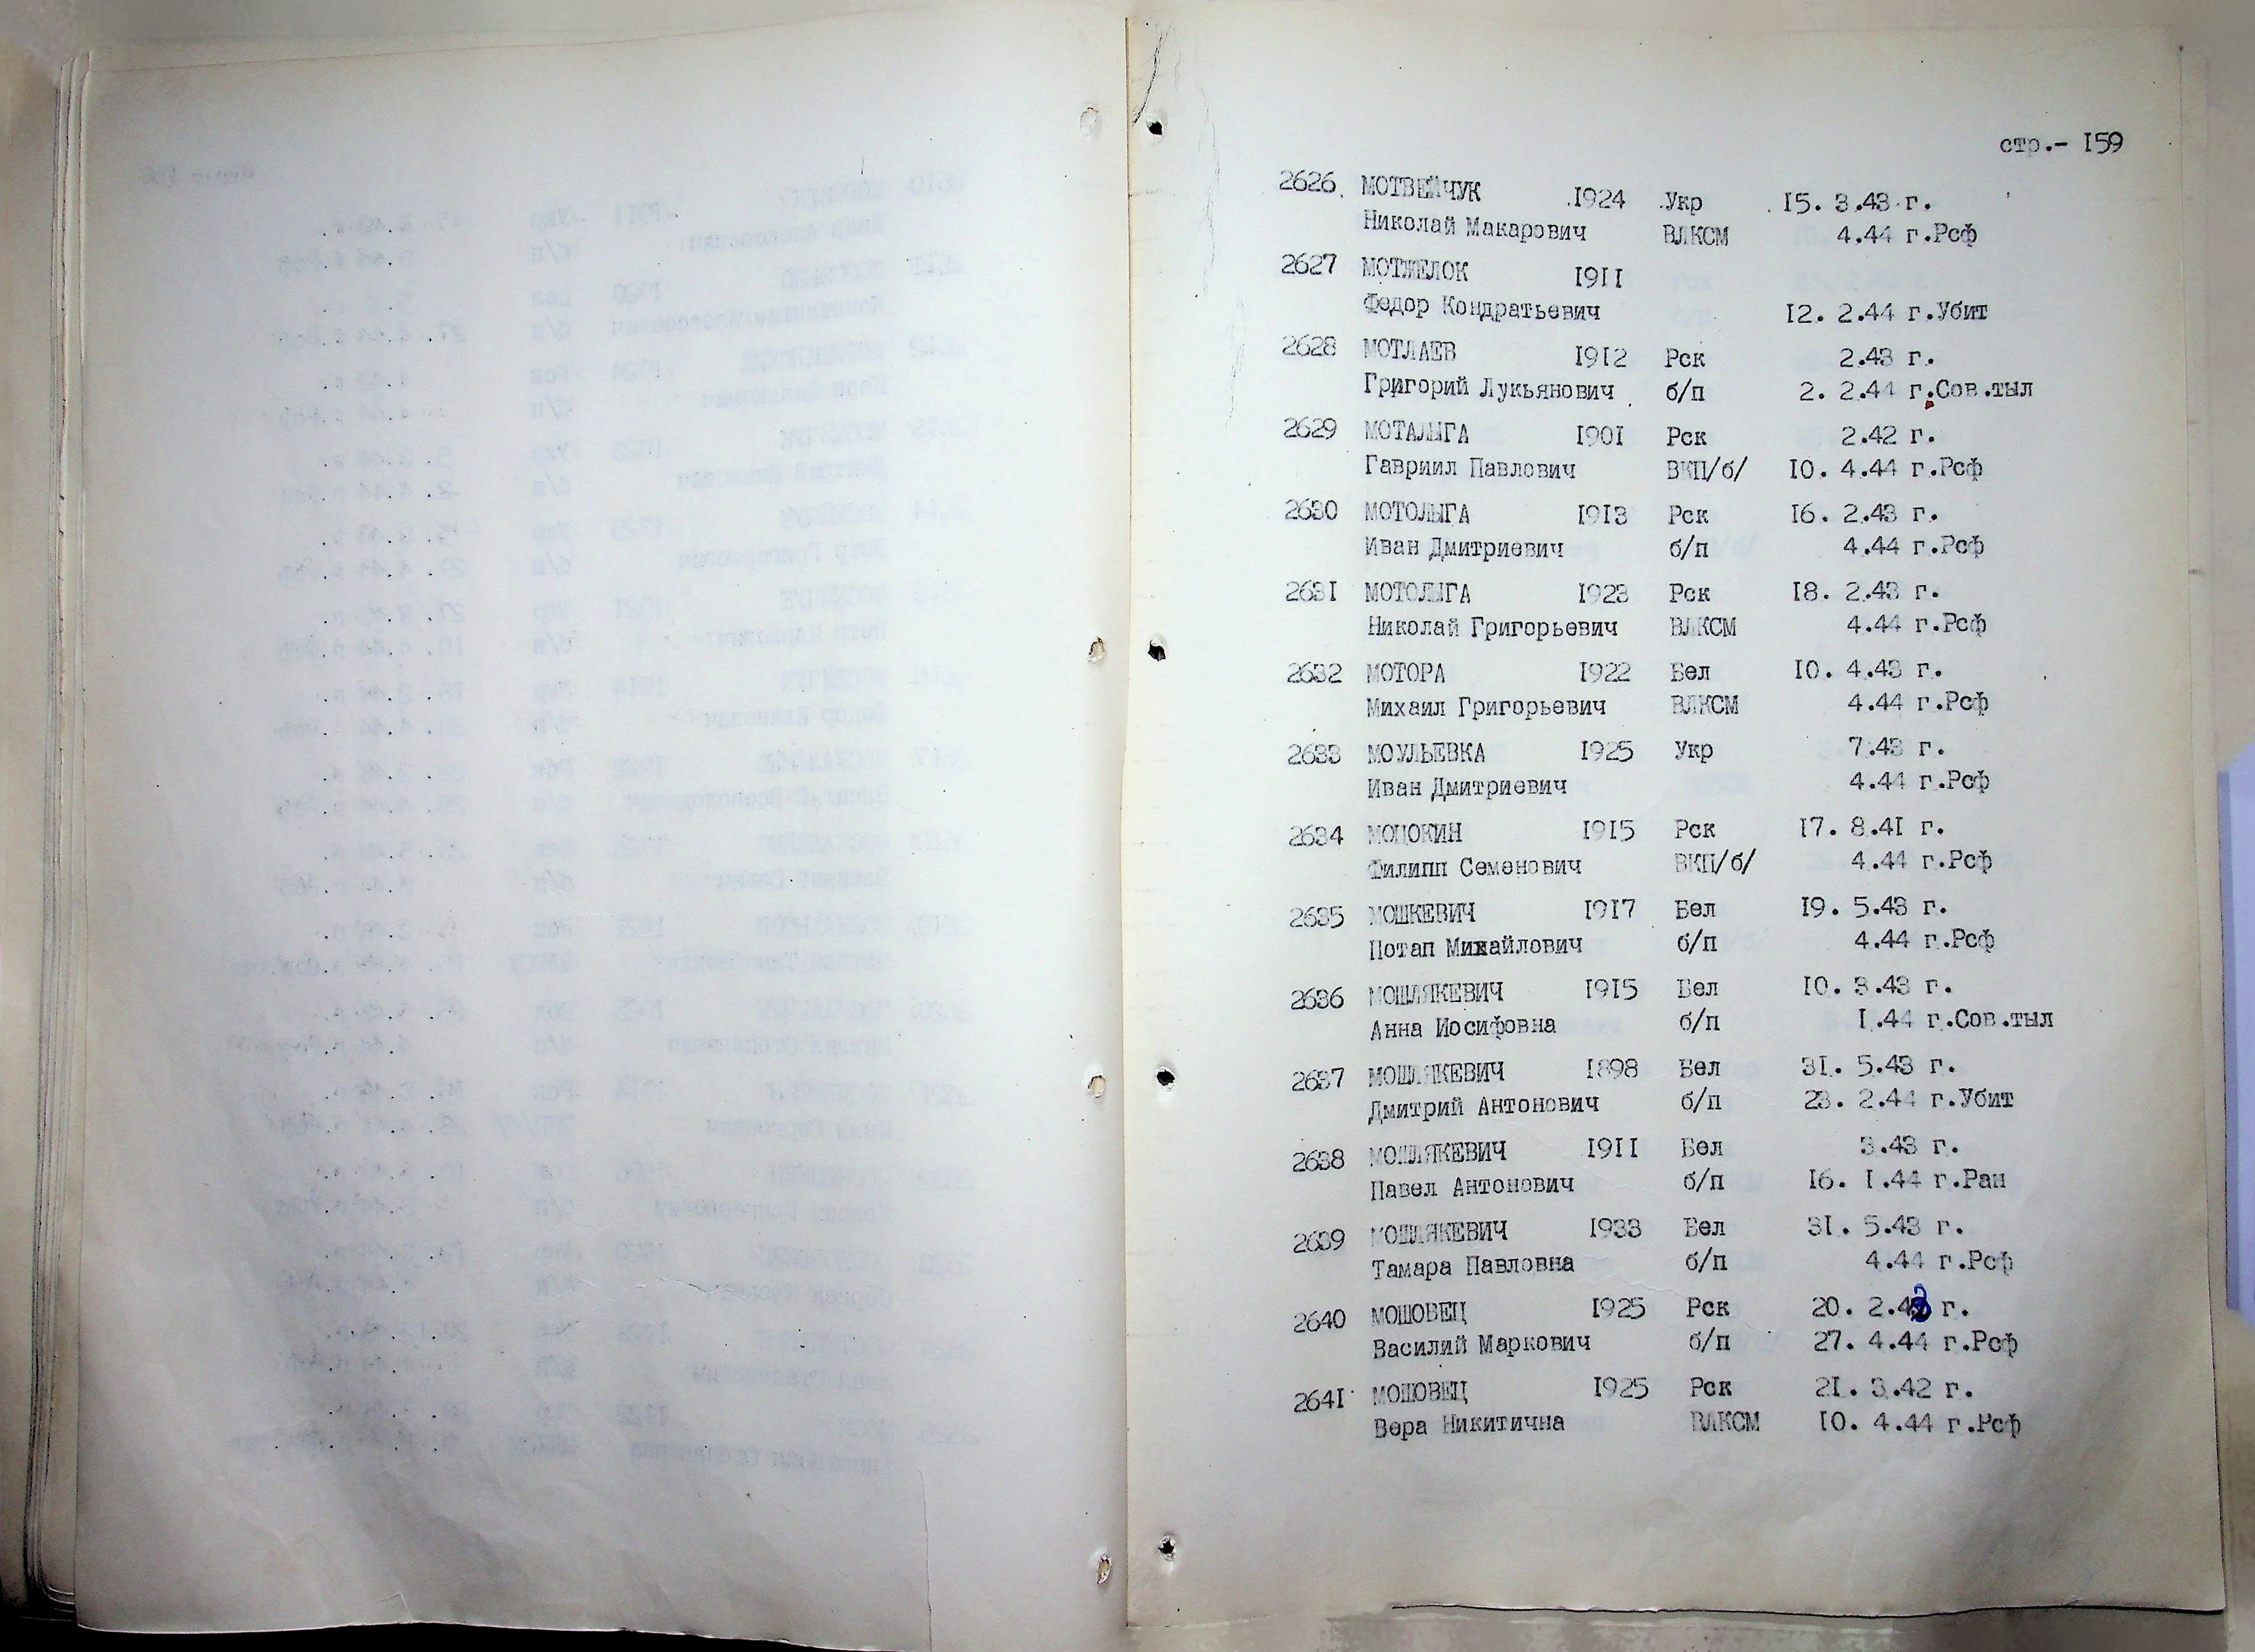 стр.- 159
2626 МОТВЕЙЧУК 1924 Укр 15. 3.43 г.
Николай Макарович ВЛКСМ 4.44 г.Рсф
2627 МОТЖЕЛОК 1911
Федор Кондратьевич 12. 2.44 г.Убит
2628 МОТЛАЕВ 1912 Рск 2.43 г.
Григорий Лукьянович б/п 2. 2.44 г.Сов.тыл
2629 МОТАЛЫГА 1901 Рск 2.42 г.
Гавриил Павлович ВКП/б/ 10. 4.44 г.Рсф
2630 МОТОЛЫГА 1913 Рск 16. 2.43 г.
Иван Дмитриевич б/п 4.44 г.Рсф
2631 МОТОЛЫГА 1923 Рск 18. 2.43 г.
Николай Григорьевич ВЛКСМ 4.44 г.Рсф
2632 МОТОРА 1922 Бел 10. 4.43 г.
Михаил Григорьевич ВЛКСМ 4.44 г.Рсф
2633 МОУЛЬЕВКА 1925 Укр 7.43 г.
Иван Дмитриевич 4.44 г.Рсф
2634 МОЦОКИН 1915 Рск 17. 8.41 г.
Филипп Семенович ВКП/б/ 4.44 г.Рсф
2635 МОШКЕВИЧ 1917 Бел 19. 5.43 г.
Потап Михайлович б/п 4.44 г.Рсф
2636 МОШЛЯКЕВИЧ 1915 Бел 10. 3.43 г.
Анна Иосифовна б/п 1.44 г.Сов.тыл
2637 МОШЛЯКЕВИЧ 1898 Бел 31. 5.43 г.
Дмитрий Антонович б/п 23. 2.44 г.Убит
2638 МОШЛЯКЕВИЧ 1911 Бел 3.43 г.
Павел Антонович б/п 16. 1.44 г.Ран
2639 МОШЛЯКЕВИЧ 1933 Бел 31. 5.43 г.
Тамара Павловна б/п 4.44 г.Рсф
2640 МОШОВЕЦ 1925 Рск 20. 2.43 г.
Василий Маркович б/п 27. 4.44 г.Рсф
2641 МОШОВЕЦ 1925 Рск 21. 3.42 г.
Вера Никитична ВЛКСМ 10. 4.44 г.Рсф